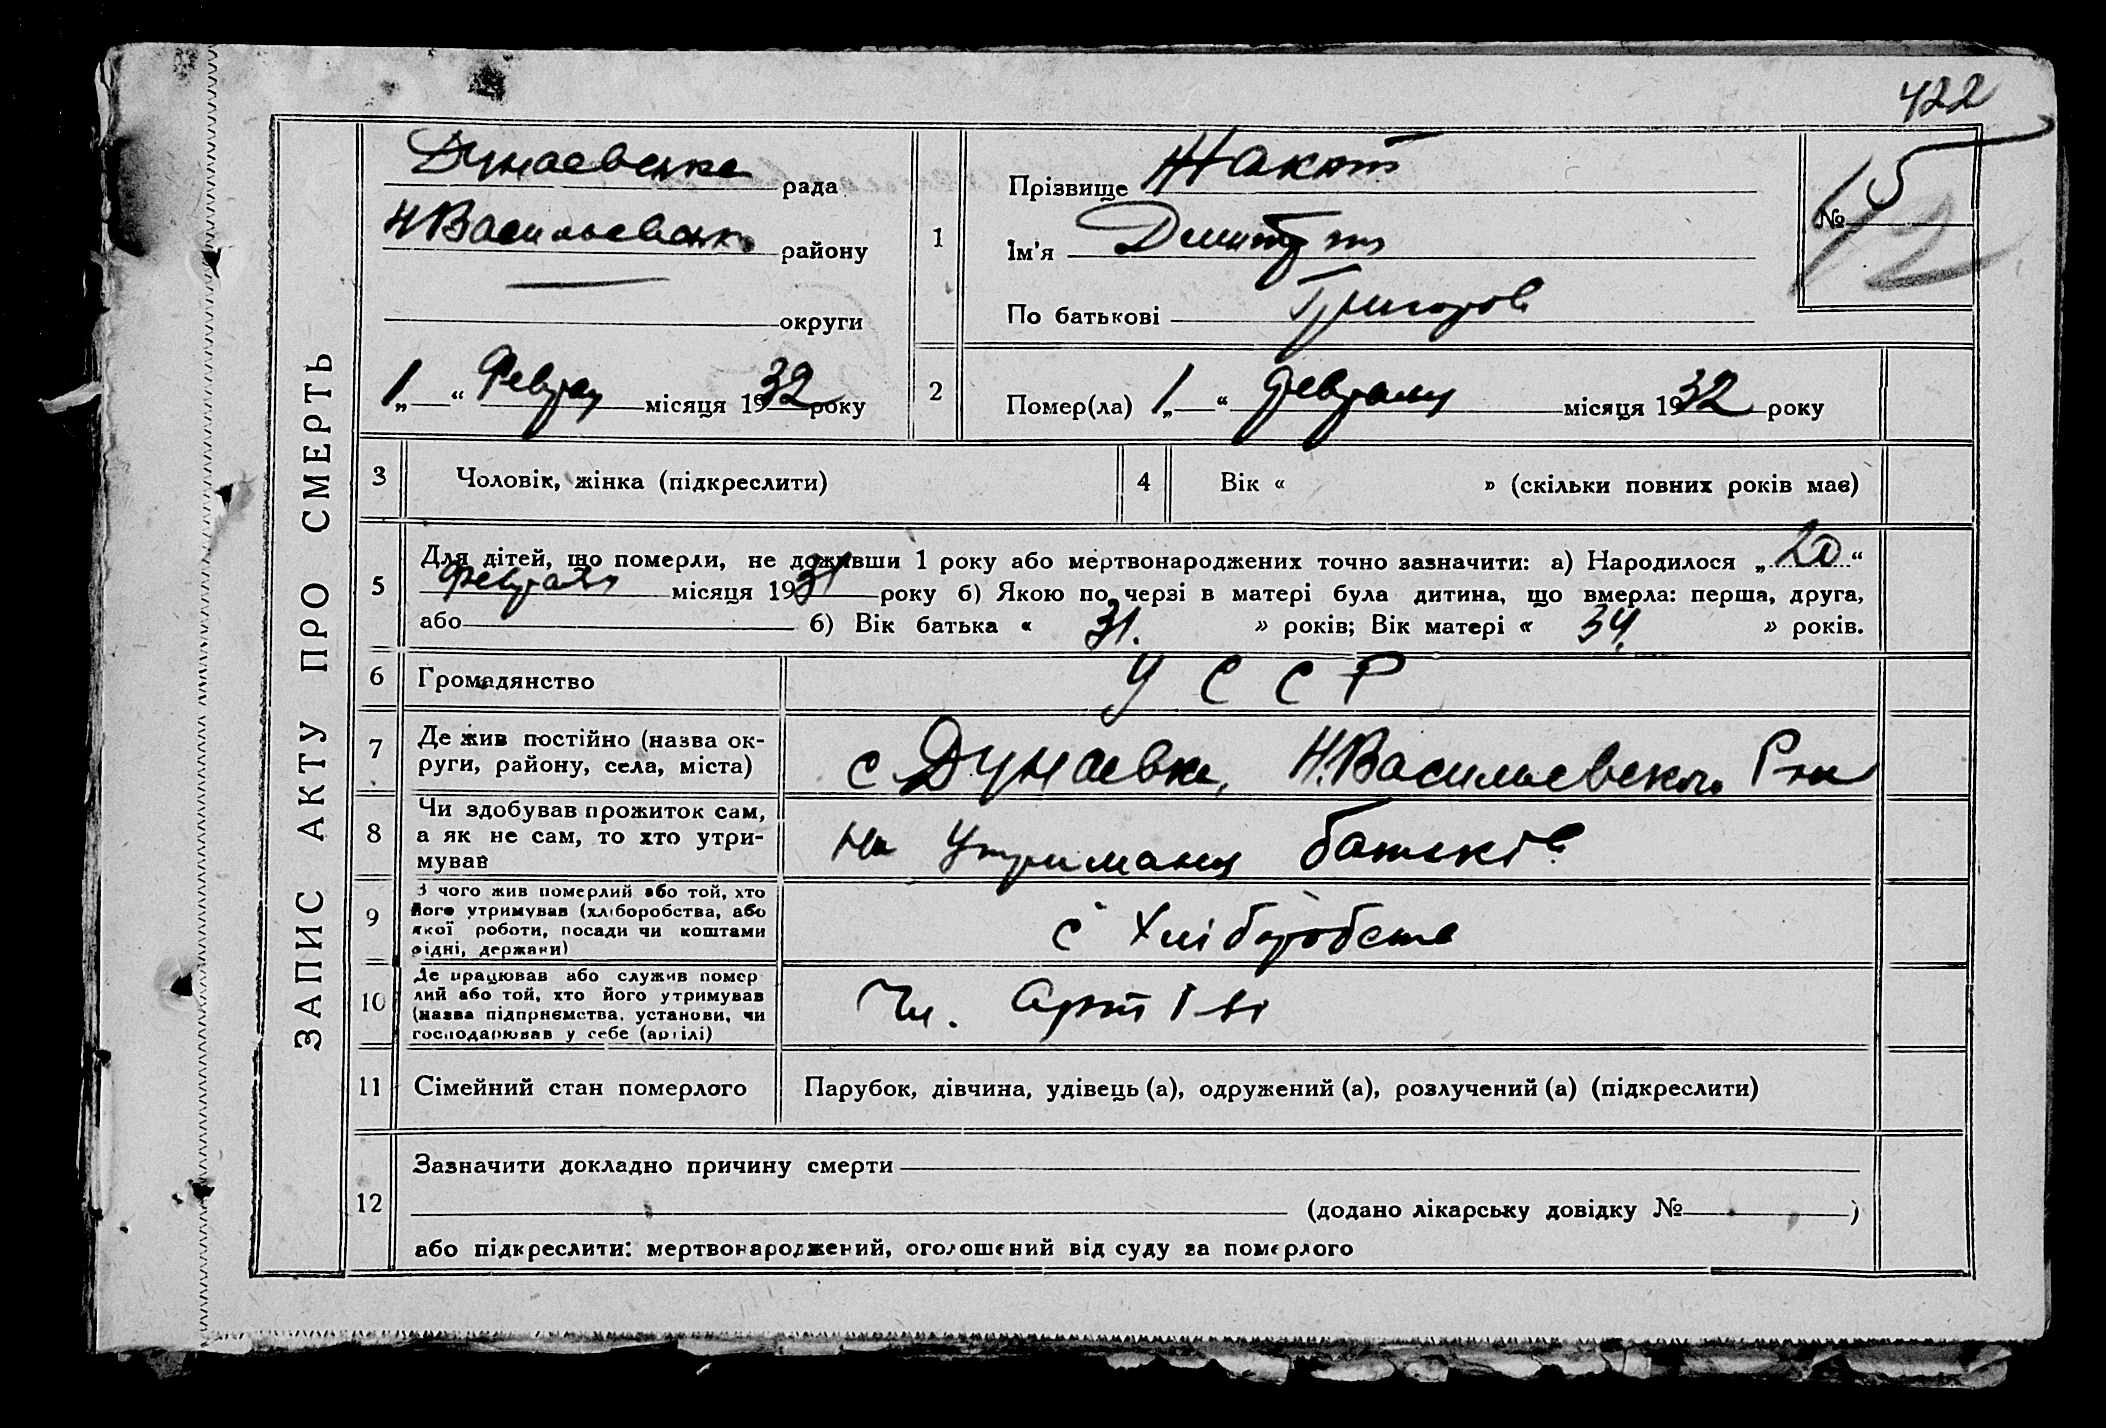 422
ЗАПИС АКТУ ПРО СМЕРТЬ
Дунаевська рада
НВасильевськ. району
округи
1 „ “ Феврал місяця 1932 року
1
Прізвище
Ім'я Дмитр
По батькові Григоров
№ 15
12
2
Помер(ла) 1 „ “ февраля місяця 1932 року
3 Чоловік, жінка (підкреслити)
4 Вік « » (скільки повних років має)
5
Для дітей, що померли, не доживши 1 року або мертвонароджених точно зазначити: а) Народилося „20“
Февраля місяця 1931 року б) Якою по черзі в матері була дитина, що вмерла: перша, друга,
або б) Вік батька « 31. » років; Вік матері « 34. » років.
6 Громадянство УССР
7
Де жив постійно (назва ок-
руги, району, села, міста)
с Дунаевка, Н.Васильевского Р-на
8
Чи здобував прожиток сам,
а як не сам, то хто утри-
мував
на утриманц батьків
9
З чого жив померлий або той, хто
його утримував (хліборобства, або
якої роботи, посади чи коштами
рідні, держави)
с Хліборобства
10
Де працював або служив помер
лий або той, хто його утримував
(назва підприємства, установи, чи
господарював у себе (артілі)
Чл. Артілі
11 Сімейний стан померлого Парубок, дівчина, удівець (а), одружений (а), розлучений (а) (підкреслити)
12
Зазначити докладно причину смерти
(додано лікарську довідку № )
або підкреслити: мертвонароджений, оголошений від суду за померлого